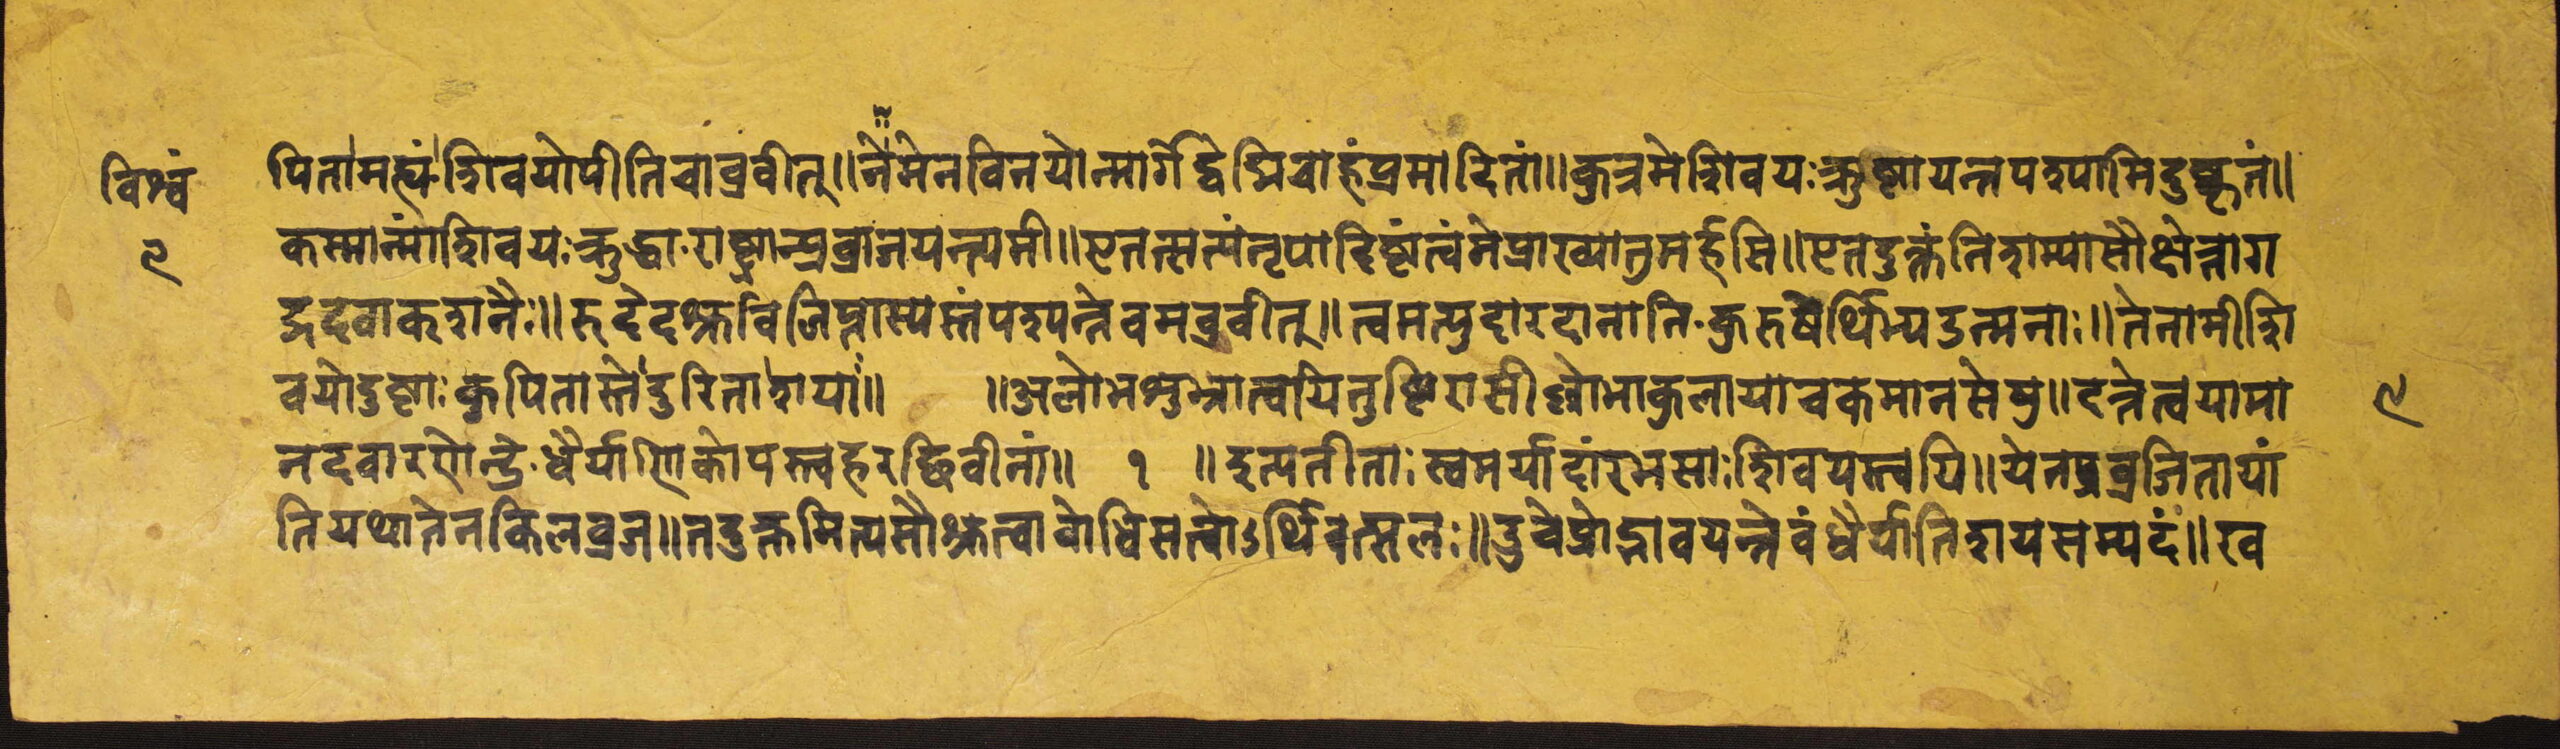 विश्वं
९
पिता मह्यं शिवयोपीति चाब्रवीत्॥ नेमेन विनयोन्मार्गे द्वेष्मि वाहं प्रमादितां॥ कुत्र मे शिवयः क्रुष्टा यन्न पश्यामि दुष्कृतं॥
कस्मान्मां शिवयः क्रुद्धा राष्ट्रान्प्रव्राजयन्त्यमी॥ एतत्सत्यं नृपादिष्टं त्वं मे प्राख्यातुमर्हसि॥ एतदुक्तं निशम्यासौ क्षेत्ता ग
द्गदवाकशनैः॥ रुदेदश्रुविलिप्तास्यस्तं पश्यन्नेवमब्रवीत्॥ त्वमत्युदारदानानि कुरुषेर्थिभ्य उन्मनाः॥ तेनामी शि
वयो दुष्टाः कुपितास्ते दुरिताशयां॥ ॥ अलोभशुभ्रा त्वयि तुष्टिरासील्लोभाकुला याचकमानसेषु॥ दत्ते त्वया मा
नदवारणेन्द्रे धैर्याणि कोपस्त्वहरच्छिवीनां॥ १ ॥ इत्यतीताः स्वमर्यादां रभसाः शिवयस्त्वयि॥ येन प्रव्रजिता यां
ति यथा तेन किल व्रज॥ तदुक्तमित्यसौ श्रुत्वा बोधिसत्वोऽर्थिवत्सलः॥ उवे प्रोद्भावयन्नेवं धैर्यातिशयसम्पदं॥ खव
९